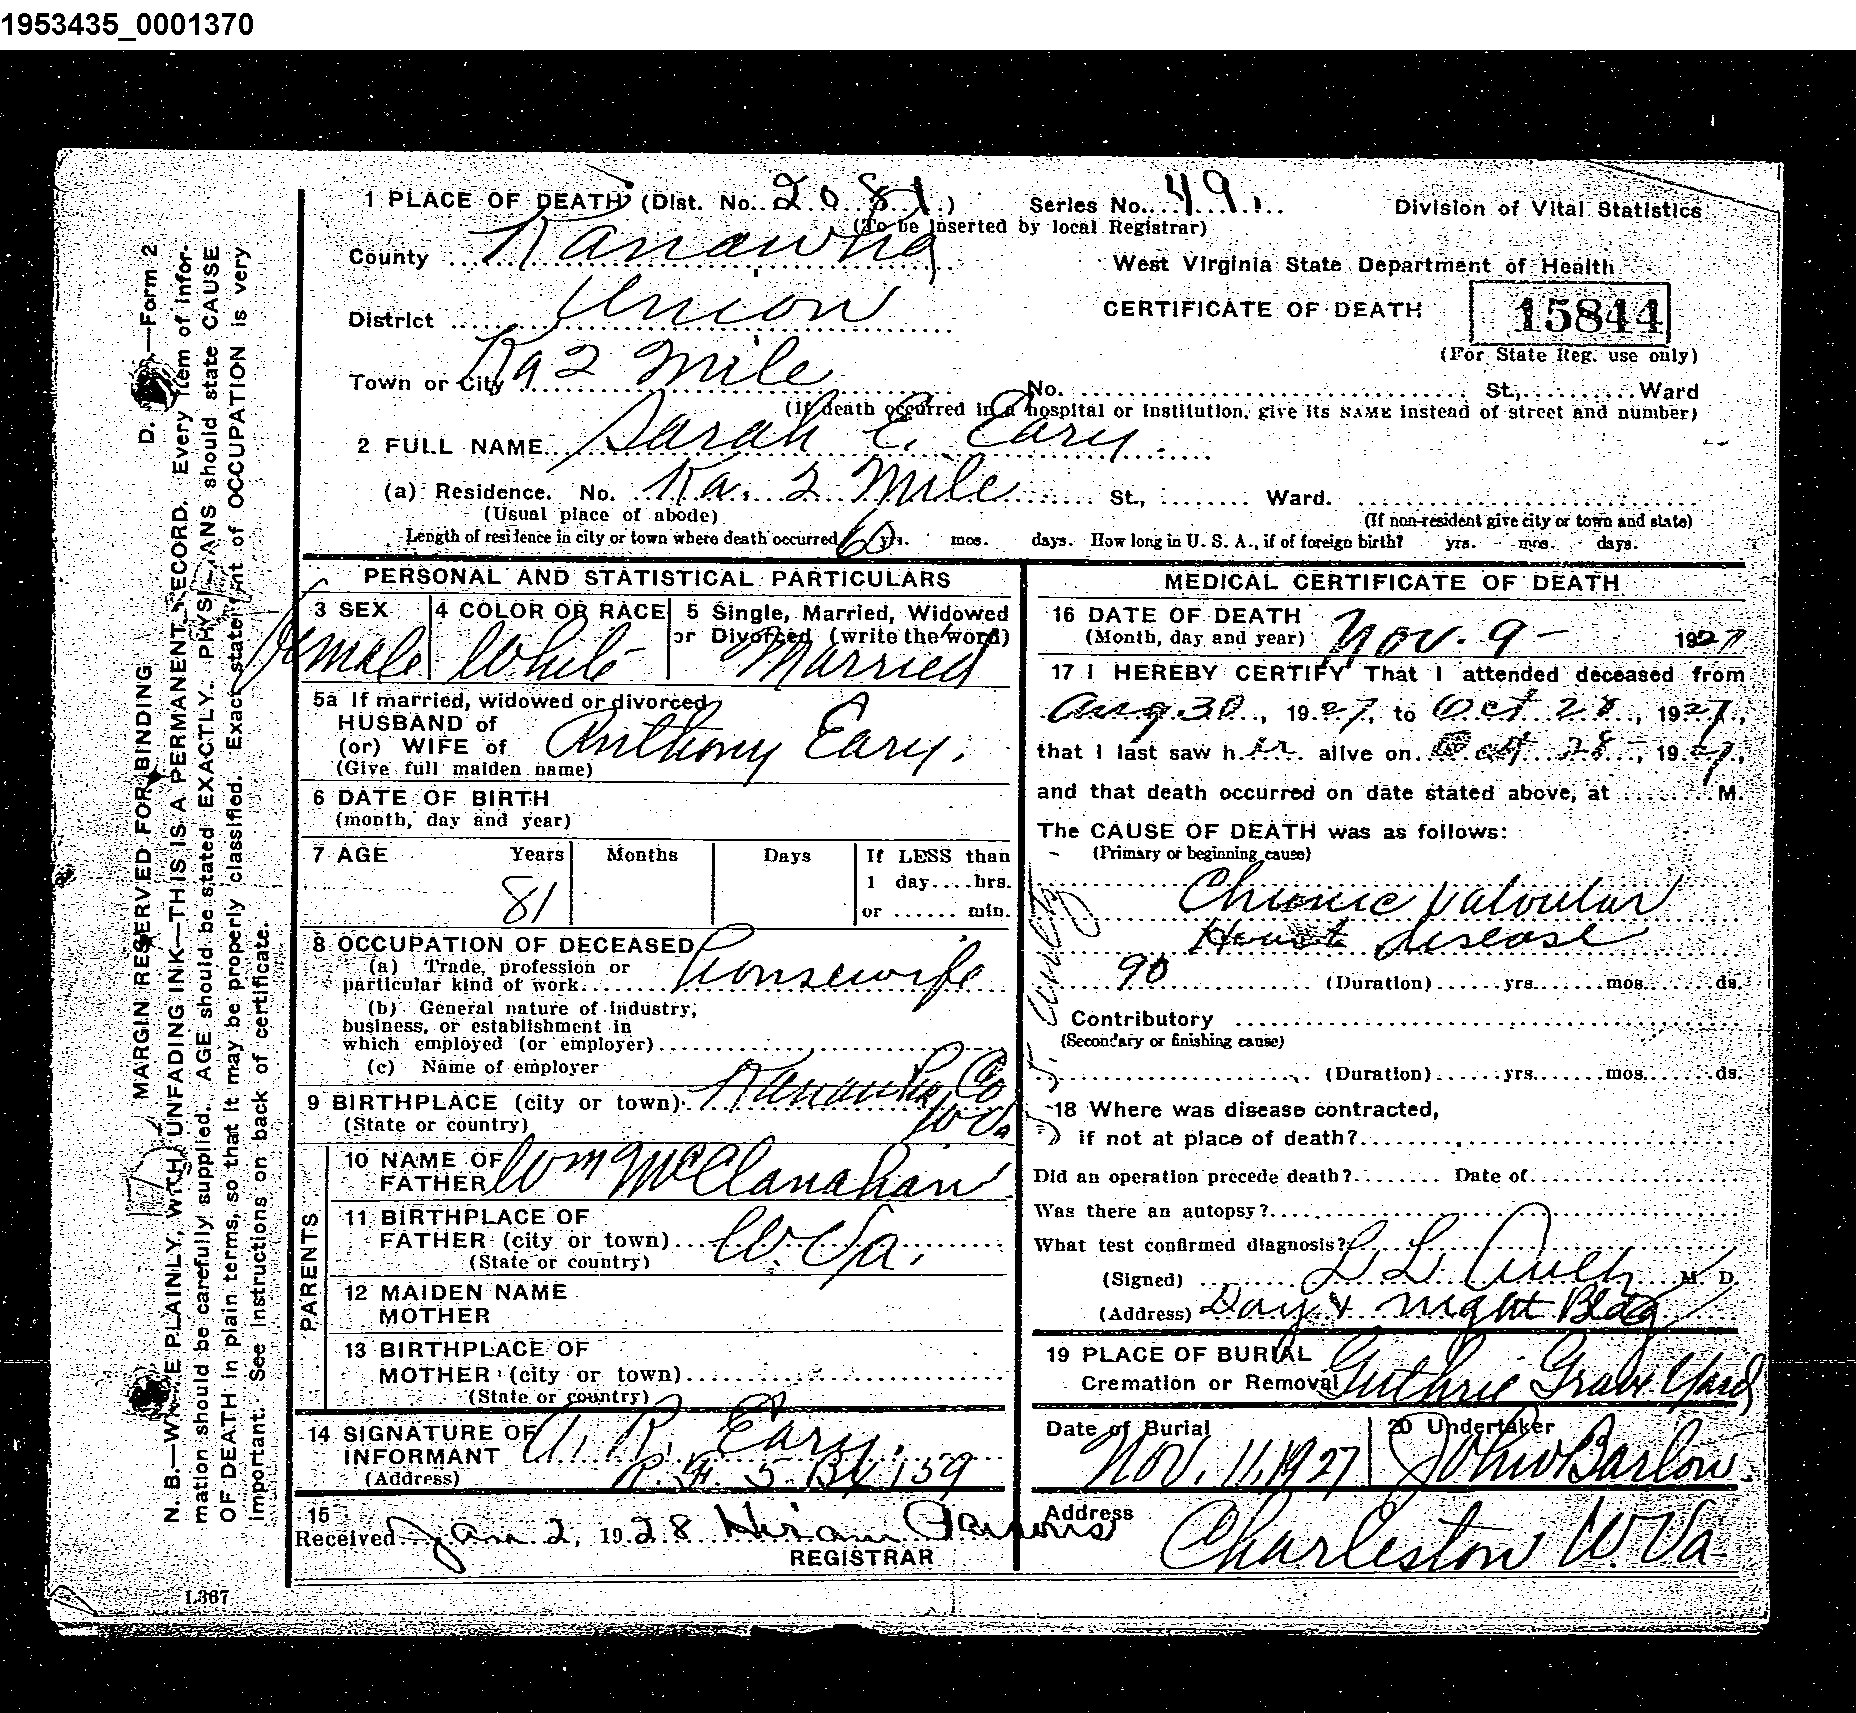 1953435_0001370
1 PLACE OF DEATH (Dist. No. 2081) Series No. 49. Division of Vital Statistics
(To be inserted by local Registrar)
County Kanawha
West Virginia State Department of Health
District Union
CERTIFICATE OF DEATH 15844
(For State Reg. use only)
Town or City Ka 2 Mile No. St., Ward
(If death occurred in a hospital or institution, give its NAME instead of street and number)
2 FULL NAME Sarah E. Eary
(a) Residence. No. Ka. 2 Mile St., Ward.
(Usual place of abode) (If non-resident give city or town and state)
Length of residence in city or town where death occurred 60 yrs. mos. days. How long in U. S. A., if of foreign birth? yrs. mos. days.
PERSONAL AND STATISTICAL PARTICULARS
3 SEX 4 COLOR OR RACE 5 Single, Married, Widowed
or Divorced (write the word)
Female White Married
5a If married, widowed or divorced
HUSBAND of
(or) WIFE of Anthony Eary.
(Give full maiden name)
6 DATE OF BIRTH
(month, day and year)
7 AGE Years Months Days If LESS than
1 day....hrs.
81 or ...... min.
8 OCCUPATION OF DECEASED
(a) Trade, profession or
particular kind of work housewife
(b) General nature of industry,
business, or establishment in
which employed (or employer)
(c) Name of employer
9 BIRTHPLACE (city or town) Kanawha Co
(State or country) W Va.
PARENTS
10 NAME OF
FATHER Wm McClanahan
11 BIRTHPLACE OF
FATHER (city or town) W. Va.
(State or country)
12 MAIDEN NAME
MOTHER
13 BIRTHPLACE OF
MOTHER (city or town)
(State or country)
14 SIGNATURE OF
INFORMANT A. R. Eary.
(Address) R. #. 5. Bx 159
15
Received Jan 2, 1928 Hiram Parsons
REGISTRAR
MEDICAL CERTIFICATE OF DEATH
16 DATE OF DEATH
(Month, day and year) Nov. 9 - 1927
17 I HEREBY CERTIFY That I attended deceased from
Aug 30, 1927, to Oct 28, 1927,
that I last saw her alive on Oct 28, 1927,
and that death occurred on date stated above, at M.
The CAUSE OF DEATH was as follows:
(Primary or beginning cause)
Chronic Valvular
Heart disease
90 (Duration) yrs. mos. ds.
Contributory
(Secondary or finishing cause)
(Duration) yrs. mos. ds.
18 Where was disease contracted,
if not at place of death?
Did an operation precede death? Date of
Was there an autopsy?
What test confirmed diagnosis?
(Signed) L L M. D.
(Address) Day & Night Bldg
19 PLACE OF BURIAL
Cremation or Removal Guthrie Grave Yard
Date of Burial 20 Undertaker
Nov. 11, 1927 John Barlow.
Address
Charleston W. Va
D. —Form 2
MARGIN RESERVED FOR BINDING
N. B.—WRITE PLAINLY, WITH UNFADING INK—THIS IS A PERMANENT RECORD. Every item of infor-
mation should be carefully supplied. AGE should be stated EXACTLY. PHYSICIANS should state CAUSE
OF DEATH in plain terms, so that it may be properly classified. Exact statement of OCCUPATION is very
important. See instructions on back of certificate.
L367